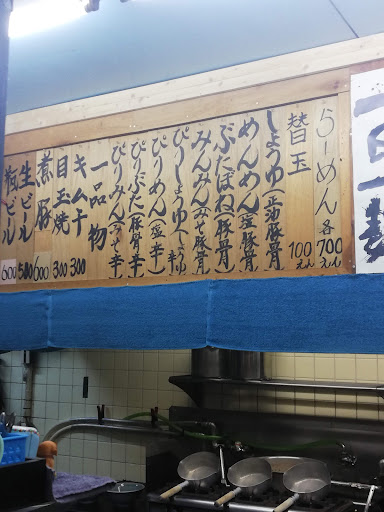 らーめん各700えん
替玉 100えん
しょうゆ(正油豚骨)
めんめん(塩豚骨)
ぶたぼね(豚骨)
みんみん(みそ豚骨)
ぴりしょうゆ(しょうゆ辛)
ぴりめん(塩辛)
ぴりぶた(豚骨辛)
ぴりみん(みそ辛)
一品物
キムチ 300
目玉焼 300
煮豚 600
生ビール 500
瓶ビール 600